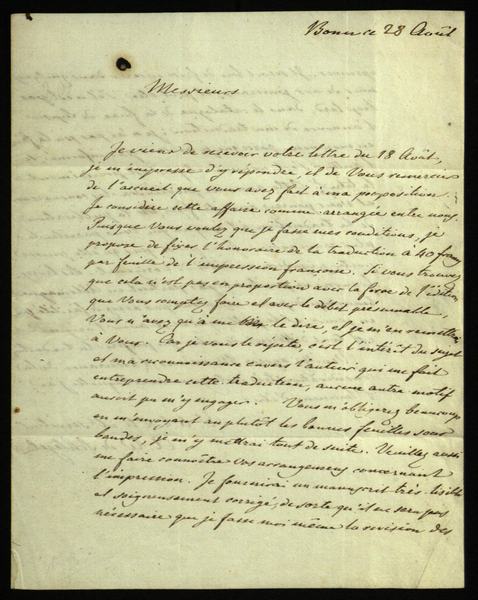 Bonn ce 28 Août
Messieurs
Je viens de recevoir votre lettre du 18 Août,
je m'empresse d'y répondre, et de Vous remercier
de l'accueil que vous avez fait à ma proposition.
Je considère cette affaire comme arrangée entre nous.
Puisque Vous voulez que je fasse mes conditions, je
propose de fixer l'honoraire de la traduction à 40 francs
par feuille de l'impression françoise. Si vous trouvez
que cela n'est pas en proportion avec la force de l'édition
que Vous comptez faire et avec le débit présumable,
Vous n'avez qu'à me le dire, et je m'en remettrai
à Vous. Car je vous le répète, c'est l'intérêt du sujet
et ma reconnaissance envers l'auteur qui me fait
entreprendre cette traduction, aucune autre motif
auroit pu m'y engager. Vous m'obligerez beaucoup
en m'envoyant au plutôt les bonnes feuilles sous
bandes, je m'y mettrai tout de suite. Veuillez aussi
me faire connoître vos arrangemens concernant
l'impression. Je fournirai un manuscrit très lisible
et soigneusement corrigé, de sorte qu'il ne sera pas
nécessaire que je fasse moi même la revision des